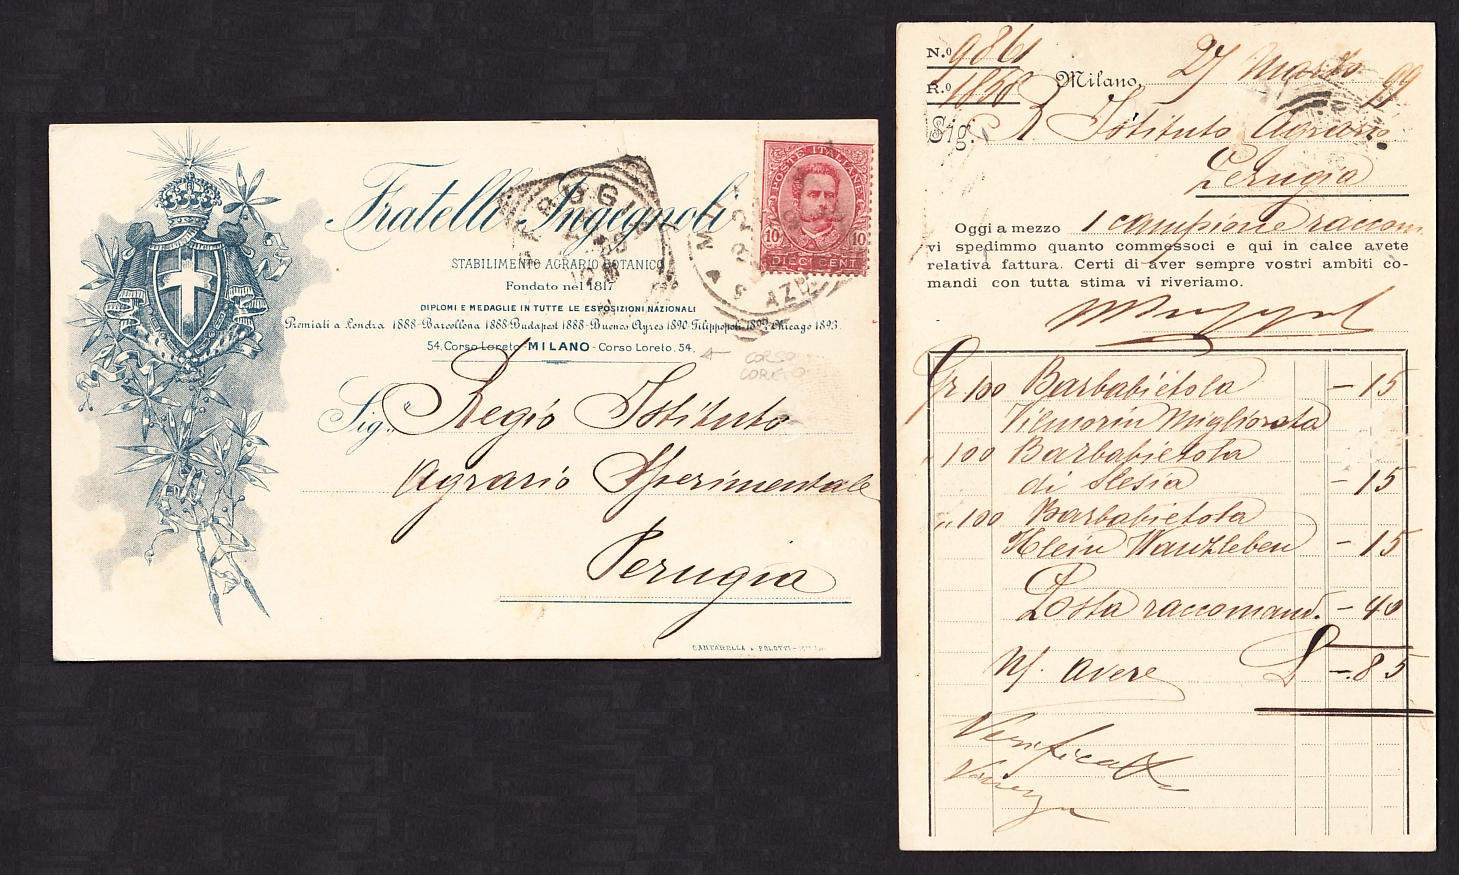 Fratelli Ingegnoli
STABILIMENTO AGRARIO BOTANICO
Fondato nel 1817
DIPLOMI E MEDAGLIE IN TUTTE LE ESPOSIZIONI NAZIONALI
Premiati a Londra 1888-Barcellona 1888 Budapest 1888-Buenos Ayres 1890 Filippopoli Chicago 1893.
54, Corso Loreto - MILANO - Corso Loreto, 54.
POSTE ITALIANE
10 10
DIECI CENT
CORSO
LORETO
Sig. Regio Istituto
Agrario Sperimentale
Perugia
CANTARELLA & POLOTTI-
N.º 9861
R.º 1858
Milano, 27 Marzo 99
Sig. R Istituto Agrario
Perugia
Oggi a mezzo 1 campione raccom
vi spedimmo quanto commessoci e qui in calce avete
relativa fattura. Certi di aver sempre vostri ambiti co-
mandi con tutta stima vi riveriamo.
Gr 100 Barbabietola - 15
Vilmorin Migliorata
" 100 Barbabietola
di Slesia - 15
" 100 Barbabietola
Klein Wanzleben - 15
Posta raccomand. - 40
N/. avere L -.85
Verificata